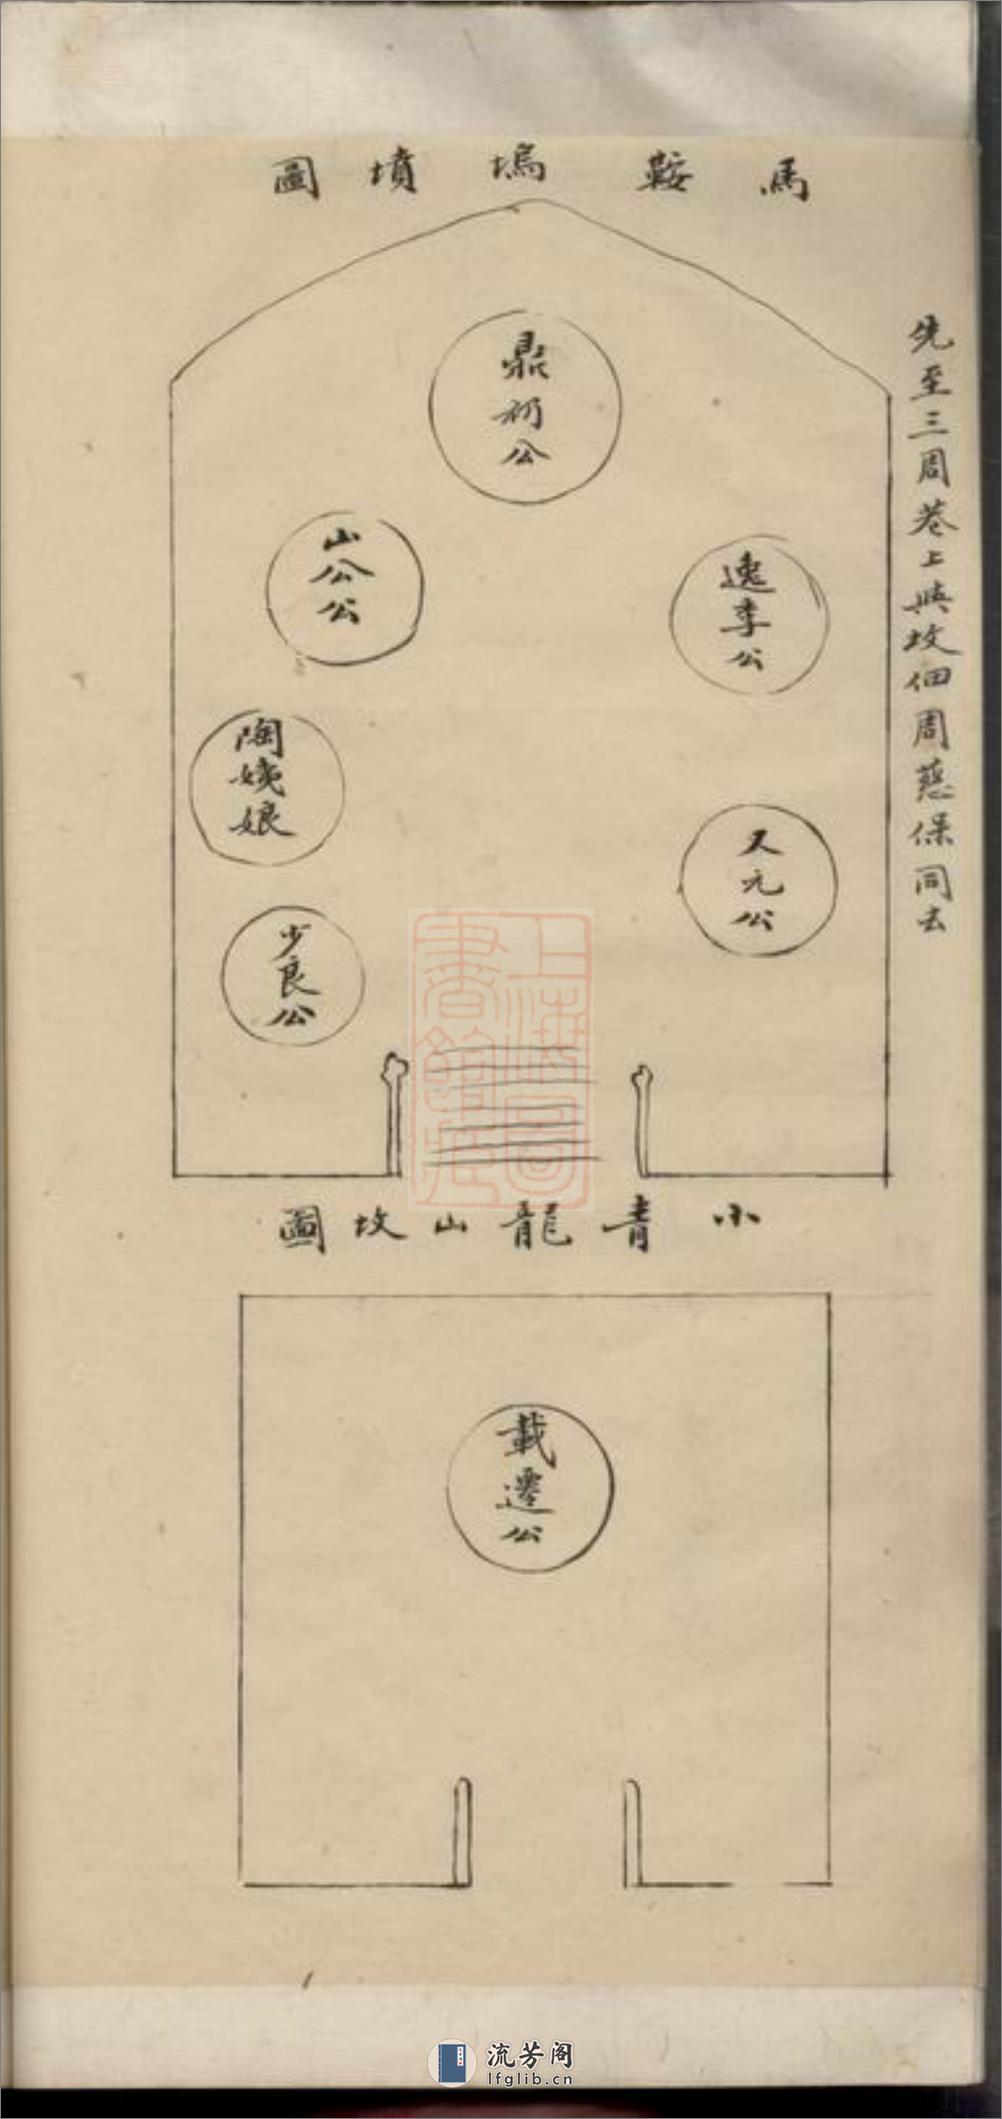 馬鞍塢墳圖
先至三周巷上與坟佃周慈保同去
鼎初公
山公公
逸季公
陶姨娘
又元公
少良公
上海圖書館藏
小青龍山坟圖
載遷公
流芳阁
lfglib.cn